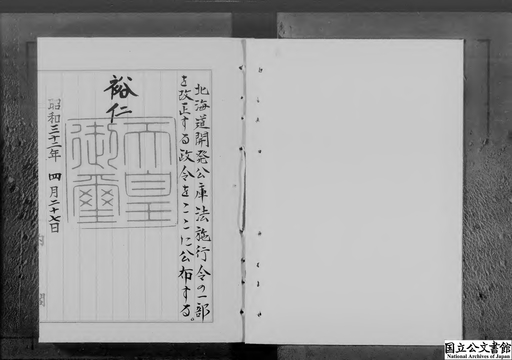 北海道開発公庫法施行令の一部
を改正する政令をここに公布する。
裕仁
天皇
御璽
昭和三十二年四月二十七日
国立公文書館
National Archives of Japan